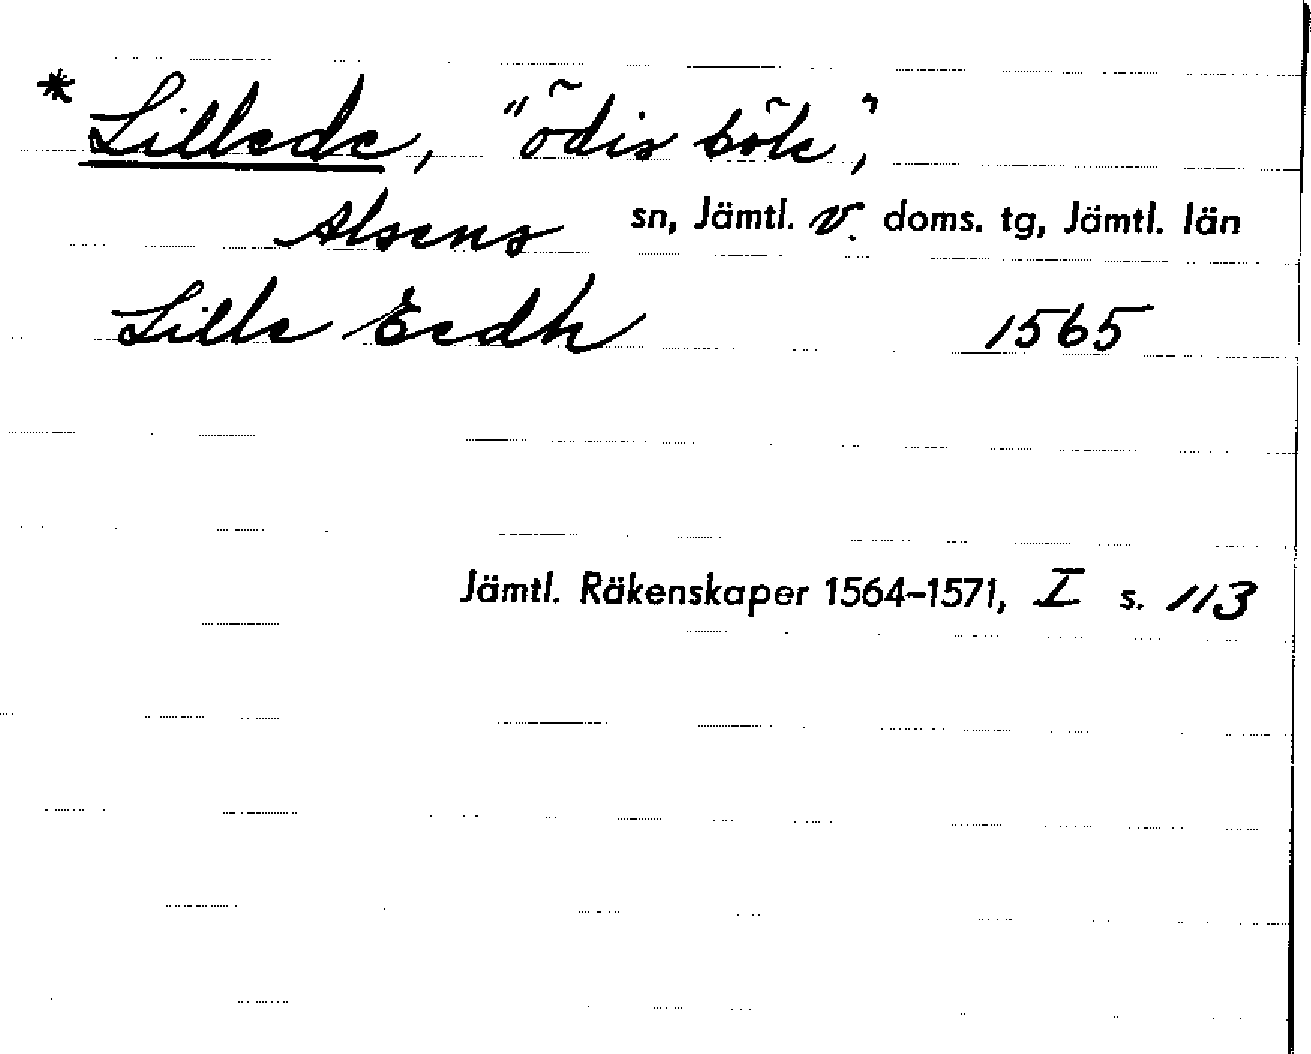 * Lillede, "õdis bõle",
Alsens sn, Jämtl. v. doms. tg, Jämtl. län
Lille Eedh 1565
Jämtl. Räkenskaper 1564-1571, I s. 113